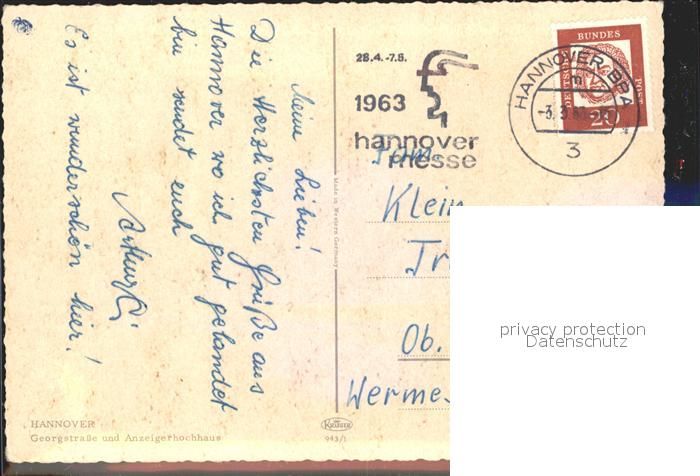 Meine Lieben!
Die Herzlichsten Grüße aus
Hannover wo ich gut gelandet
bin sendet euch
Es ist wunderschön hier!
28.4.-7.5.
1963
hannover
messe
HANNOVER BPA
3
DEUTSCHE
BUNDES
POST
20
Fam.
Klein
Tr
Ob.
Werme
Made in Western Germany
privacy protection
Datenschutz
HANNOVER
Georgstraße und Anzeigerhochhaus
KRÜGER
943/1